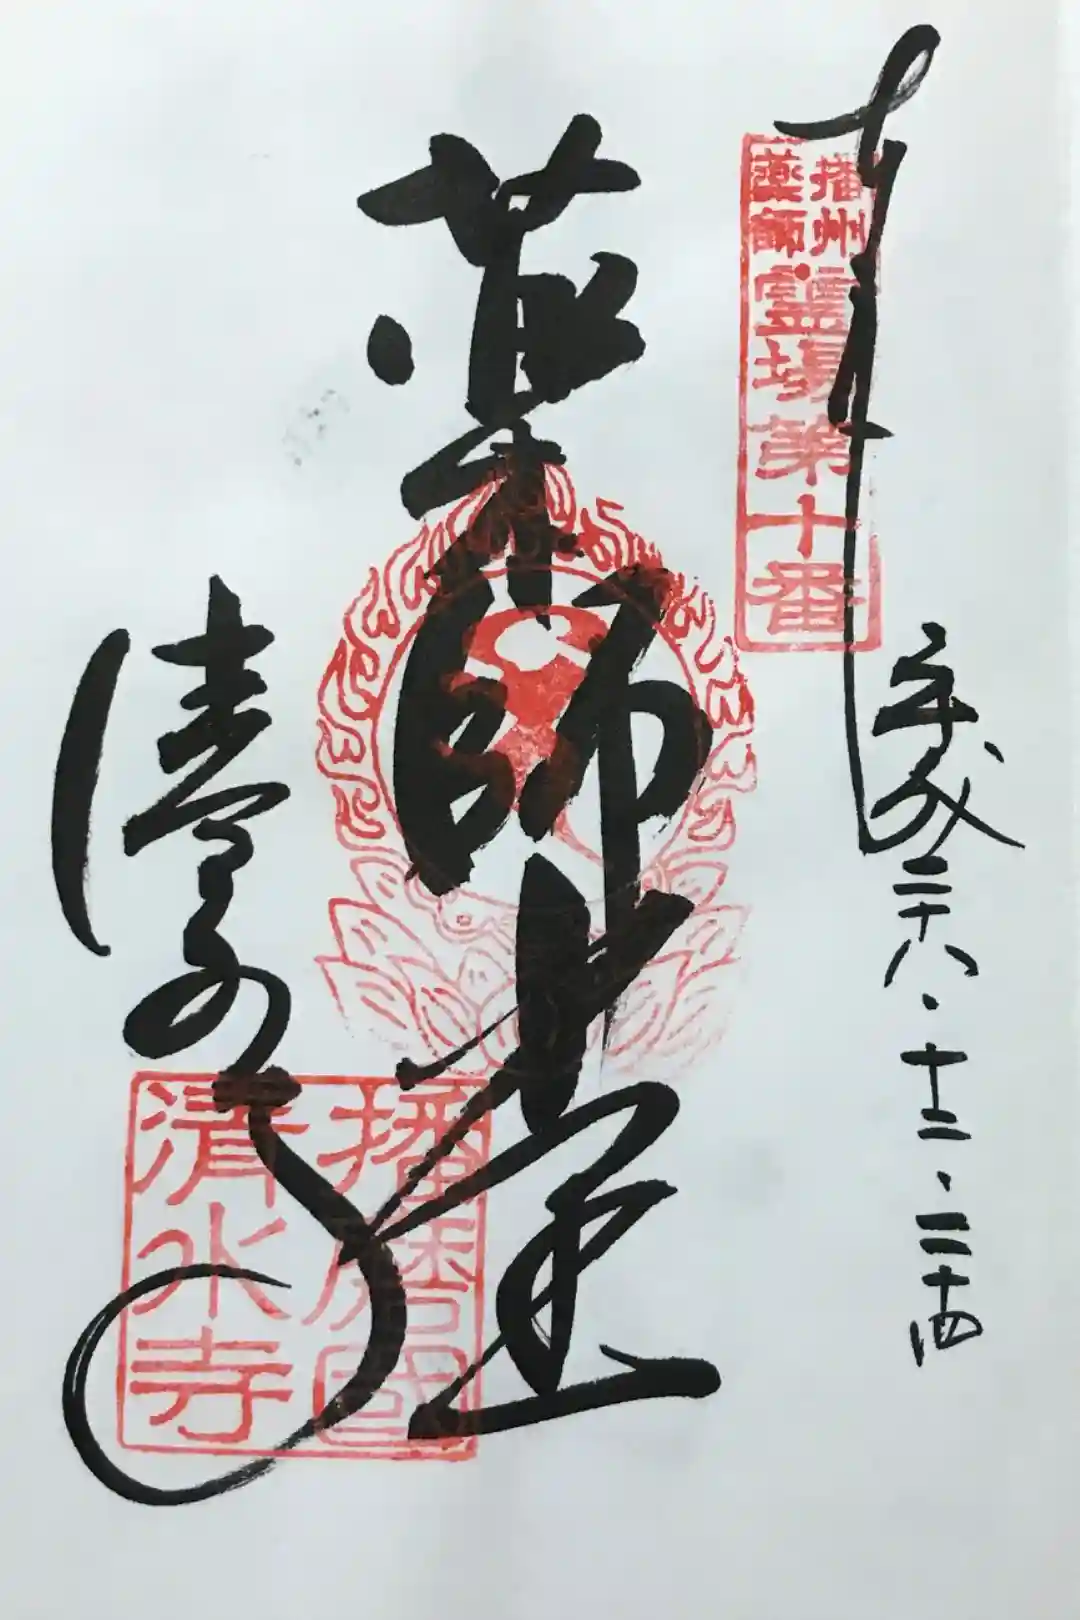 奉拝
播州
薬師
霊場第十番
平成二十八・十二・二十四
薬師堂
清水寺
播磨國
清水寺